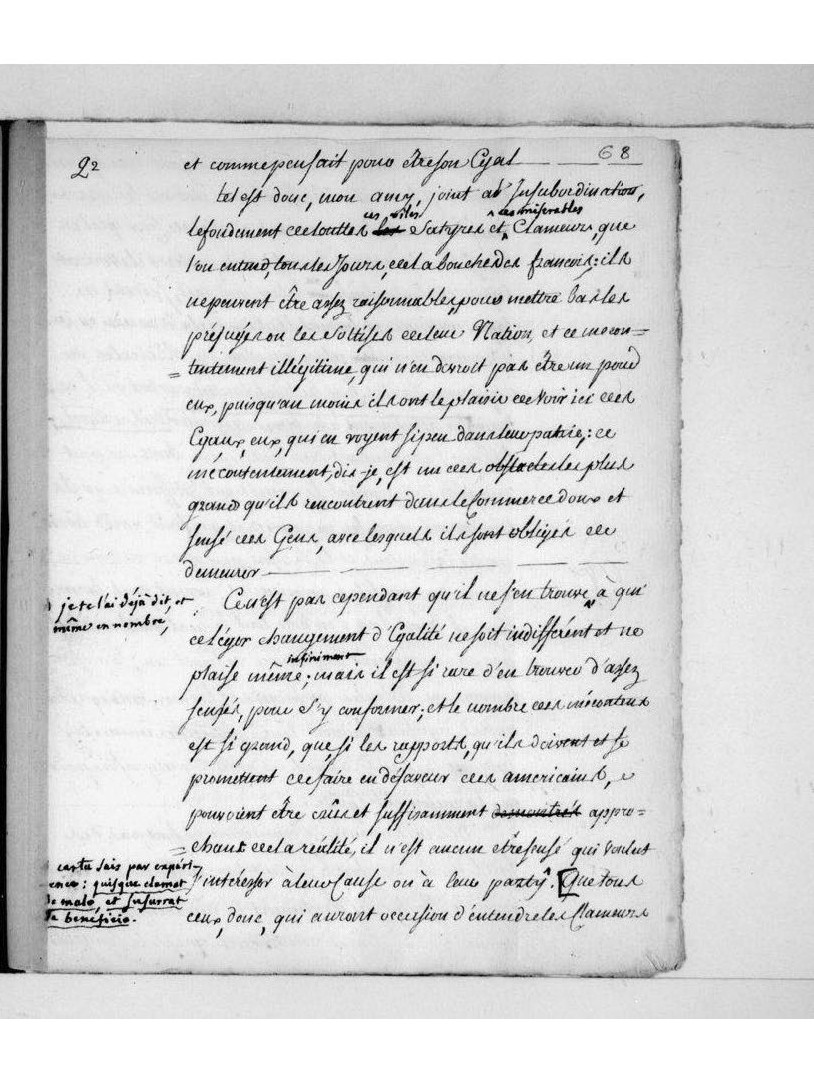 22
68
et comme pensait pour être son Egal
tel est donc, mon amy, joint à l'Insubordination,
ces viles
ces miserables
le fondement de toutes les Satyres et Clameurs, que
l'on entend, tous les Jours, de la bouche des francois: ils
ne peuvent être assez raisonnables, pour mettre bas les
préjugés ou les sottises de leur Nation, et ce mecon=
=tentement illégitime, qui n'en devroit pas être un pour
eux, puisqu'au moins ils ont le plaisir de voir ici des
Egaux, eux, qui en voyent si peu dans leur patrie; ce
mécontentement, dis-je, est un des obstacles les plus
grands qu'ils rencontrent dans le Commerce doux et
sensé des Gens, avec lesquels ils sont obligés de
demeurer
je te l'ai déjà dit, et
même en nombre,
Ce n'est pas cependant qu'il ne s'en trouve, à qui
ce léger changement d'Egalité ne soit indifférent et ne
infiniment
plaise même; mais il est si rare d'en trouver d'assez
sensés, pour s'y conformer; et le nombre des mécontens
est si grand, que, si les rapports, qu'ils doivent et se
promettent de faire en défaveur des americains,
pouvoient être crûs et suffisamment demontrés appro=
=chant de la réalité, il n'est aucun être sensé qui voulut
s'intéresser à leur Cause ou à leur party. Que tous
car tu sais par expéri-
ence: quisque clamat
de malo, et susurrat
de beneficio.
ceux, donc, qui auront occasion d'entendre les Clameurs